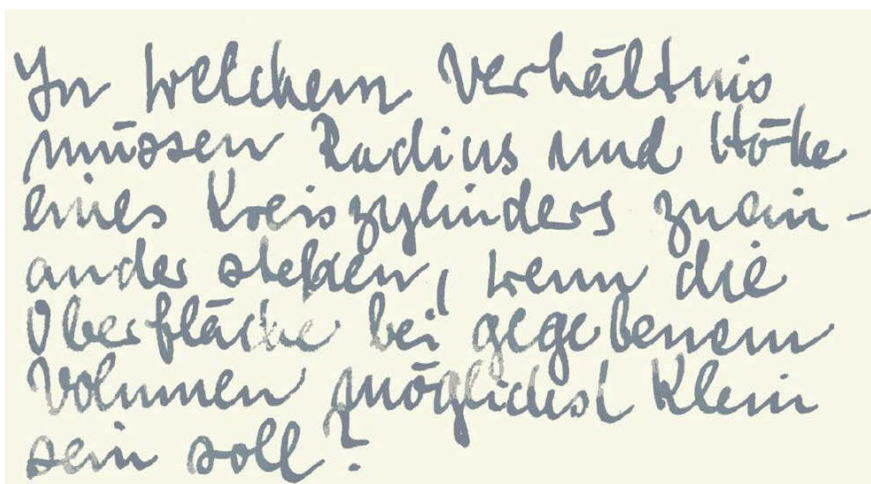 In welchem Verhältnis
müssen Radius und Höhe
eines Kreiszylinders zuein-
ander stehen, wenn die
Oberfläche bei gegebenem
Volumen möglichst klein
sein soll?